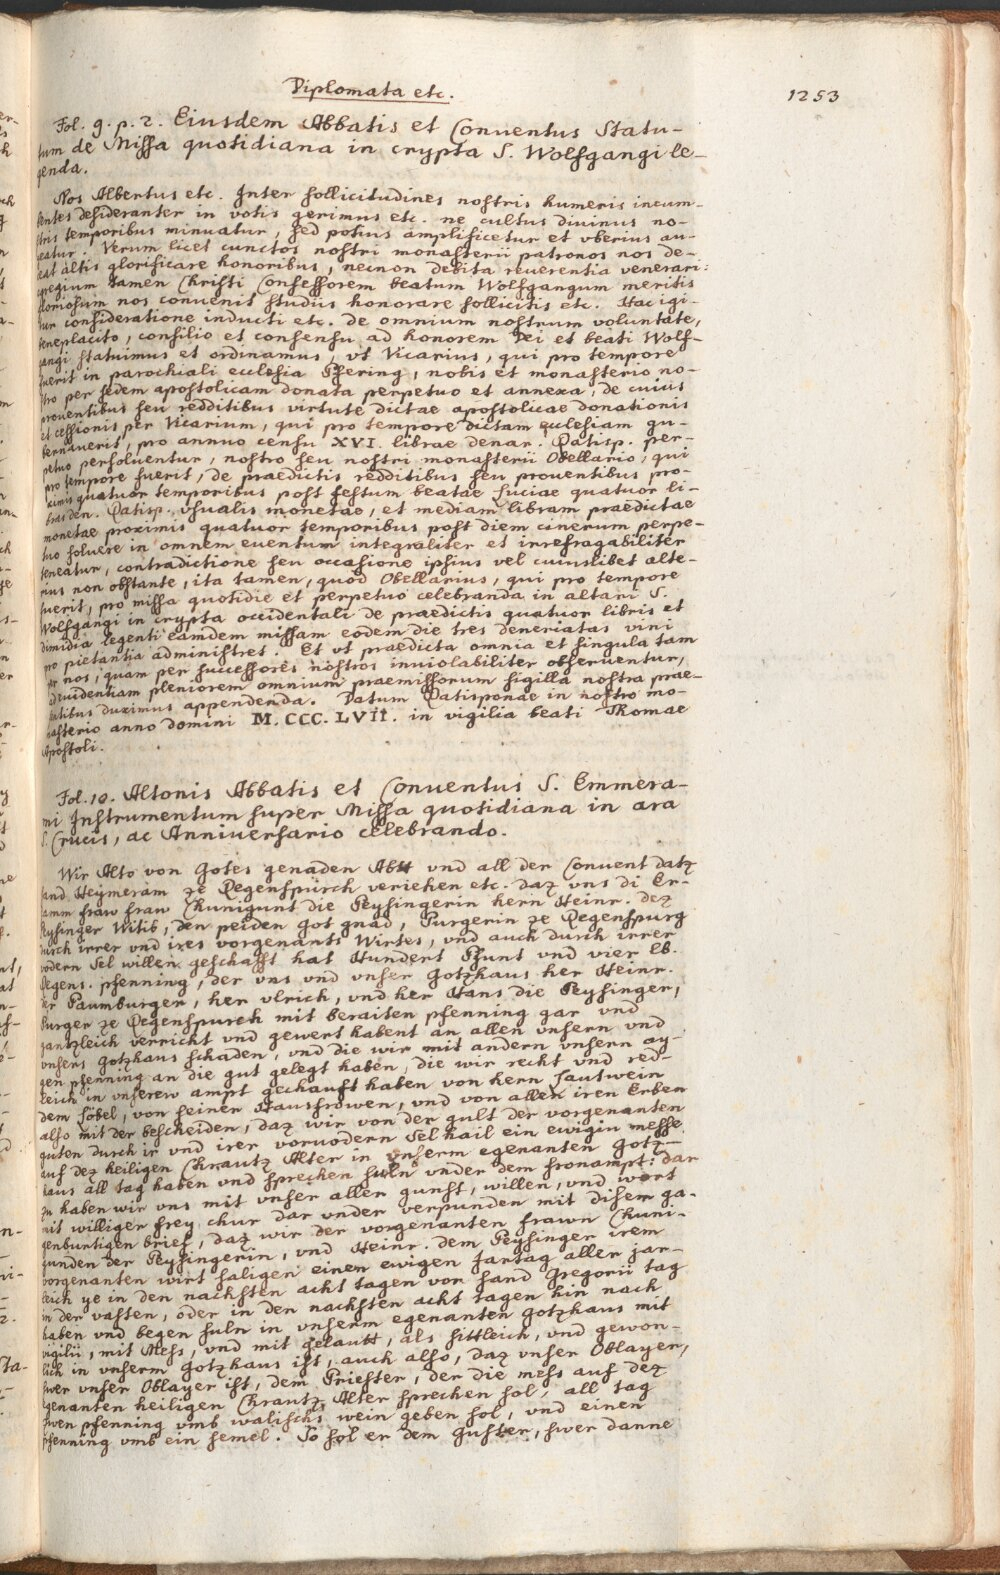 Diplomata etc.
1253
Fol. 9. p. 2. Eiusdem Abbatis et Conventus Statu-
tum de Missa quotidiana in crypta S. Wolfgangi le-
genda.
Nos Albertus etc. Inter sollicitudines nostris humeris incum-
bentes desideranter in votis gerimus etc. ne cultus divinus no-
stris temporibus minuatur, sed potius amplificetur et vberius au-
geatur. Verum licet cunctos nostri monasterii patronos nos de-
ceat altis glorificare honoribus, necnon debita reuerentia venerari:
egregium tamen Christi Confessorem beatum Wolfgangum meritis
glomosum nos conuenit studiis honorare sollicitis etc. Hac igi-
tur consideratione inducti etc. de omnium nostrum voluntate,
beneplacito, consilio et consensu ad honorem Dei et beati Wolf-
gangi statuimus et ordinamus, vt Vicarius, qui pro tempore
fuerit in parochiali ecclesia Pfering, nobis et monasterio no-
stro per sedem apostolicam donata perpetuo et annexa, de cuius
prouentibus seu redditibus virtute dictae apostolicae donationis
et cessionis per Vicarium, qui pro tempore dictam ecclesiam gu-
bernauerit, pro annuo censu XVI. librae denar. Ratisp. per-
petuo persoluentur, nostro seu nostri monasterii Obellario, qui
pro tempore fuerit, de praedictis redditibus seu prouentibus pro-
ximis quatuor temporibus post festum beatae Luciae quatuor li-
bras den. Ratisp. vsualis monetae, et mediam libram praedictae
monetae proximis quatuor temporibus post diem cinerum perpe-
tuo soluere in omnem euentum integraliter et irrefragabiliter
teneatur, contradictione seu occasione ipsius vel cuiuslibet alte-
rius non obstante, ita tamen, quod Obellarius, qui pro tempore
fuerit, pro missa quotidie et perpetuo celebranda in altari S.
Wolfgangi in crypta occidentali de praedictis quatuor libris et
dimidia legenti eamdem missam eodem die tres deneriatas vini
pro pietantia administret. Et vt praedicta omnia et singula tam
per nos, quam per successores nostros inuiolabiliter obseruentur,
ad euidentiam pleniorem omnium praemissorum sigilla nostra prae-
sentibus duximus appendenda. Datum Ratisponae in nostro mo-
nasterio anno domini M. CCC. LVII. in vigilia beati Thomae
Apostoli.
Fol. 10. Altonis Abbatis et Conventus S. Emmera-
mi Instrumentum super Missa quotidiana in ara
S. Crucis, ac Anniversario celebrando.
Wir Alto von Gotes genaden Abtt vnd all der Convent datz
sand Heymeram ze Regenspurch veriehen etc. daz vns di Er-
samm fraw fraw Chunigunt die Peysingerin hern Heinr. dez
Peysinger Witib, den peiden Got gnad, Purgerin ze Regenspurg
durch irrer vnd ires vorgenants Wirtes, vnd auch durch irrer
vodern Sel willen geschafft hat Hundert Pfunt vnd vier lb.
Regens. pfenning, der vns vnd vnser Gotzhaus her Heinr.
der Paumburger, her Vlrich, vnd her Hans die Peysinger,
Burger ze Regenspurch mit beraiten pfenning gar vnd
gantzleich verricht vnd gewert habent an allen vnsern vnd
vnsers Gotzhaus schaden, vnd die wir mit andern vnsern ay-
gen pfenning an die gut gelegt haben, die wir recht vnd red-
leich in vnserew ampt gechauft haben von hern Lautwein
dem Löbel, von seiner Hausfrowen, vnd von allen iren Erben
also mit der bescheiden, daz wir von der gult der vorgenanten
guten durch ir vnd irer voruodern Sel hail ein ewigin messe
auf dez heiligen Chrautz Alter in vnserm egenanten Gotz-
haus all tag haben vnd sprechen suln vnder dem fronampt: dar
zu haben wir vns mit vnser aller gunst, willen, vnd wort
mit williger frey chur dar vnder verpunden mit disem ga-
genburtigen brief, daz wir der vorgenanten frawn Chuni-
gunden der Peysingerin, vnd Heinr. dem Peysinger irem
vorgenanten wirt saligen einen ewigen Jartag aller jar-
leich ye in den nachsten acht tagen vor sand Gregorii tag
in der vasten, oder in den nachsten acht tagen hin nach
haben vnd begen suln in vnserm egenanten Gotzhaus mit
vigilii, mit Mess, vnd mit gelautt, als sittleich, vnd gewon-
lich in vnserm Gotzhaus ist, auch also, daz vnser Oblayer,
swer vnser Oblayer ist, dem Priester, der die mess auf dez
egenanten heiligen Chrautz Alter sprechen sol, all tag
zwen pfenning vmb walischs wein geben sol, vnd einen
pfenning vmb ein semel. So sol er dem Guster, swer danne